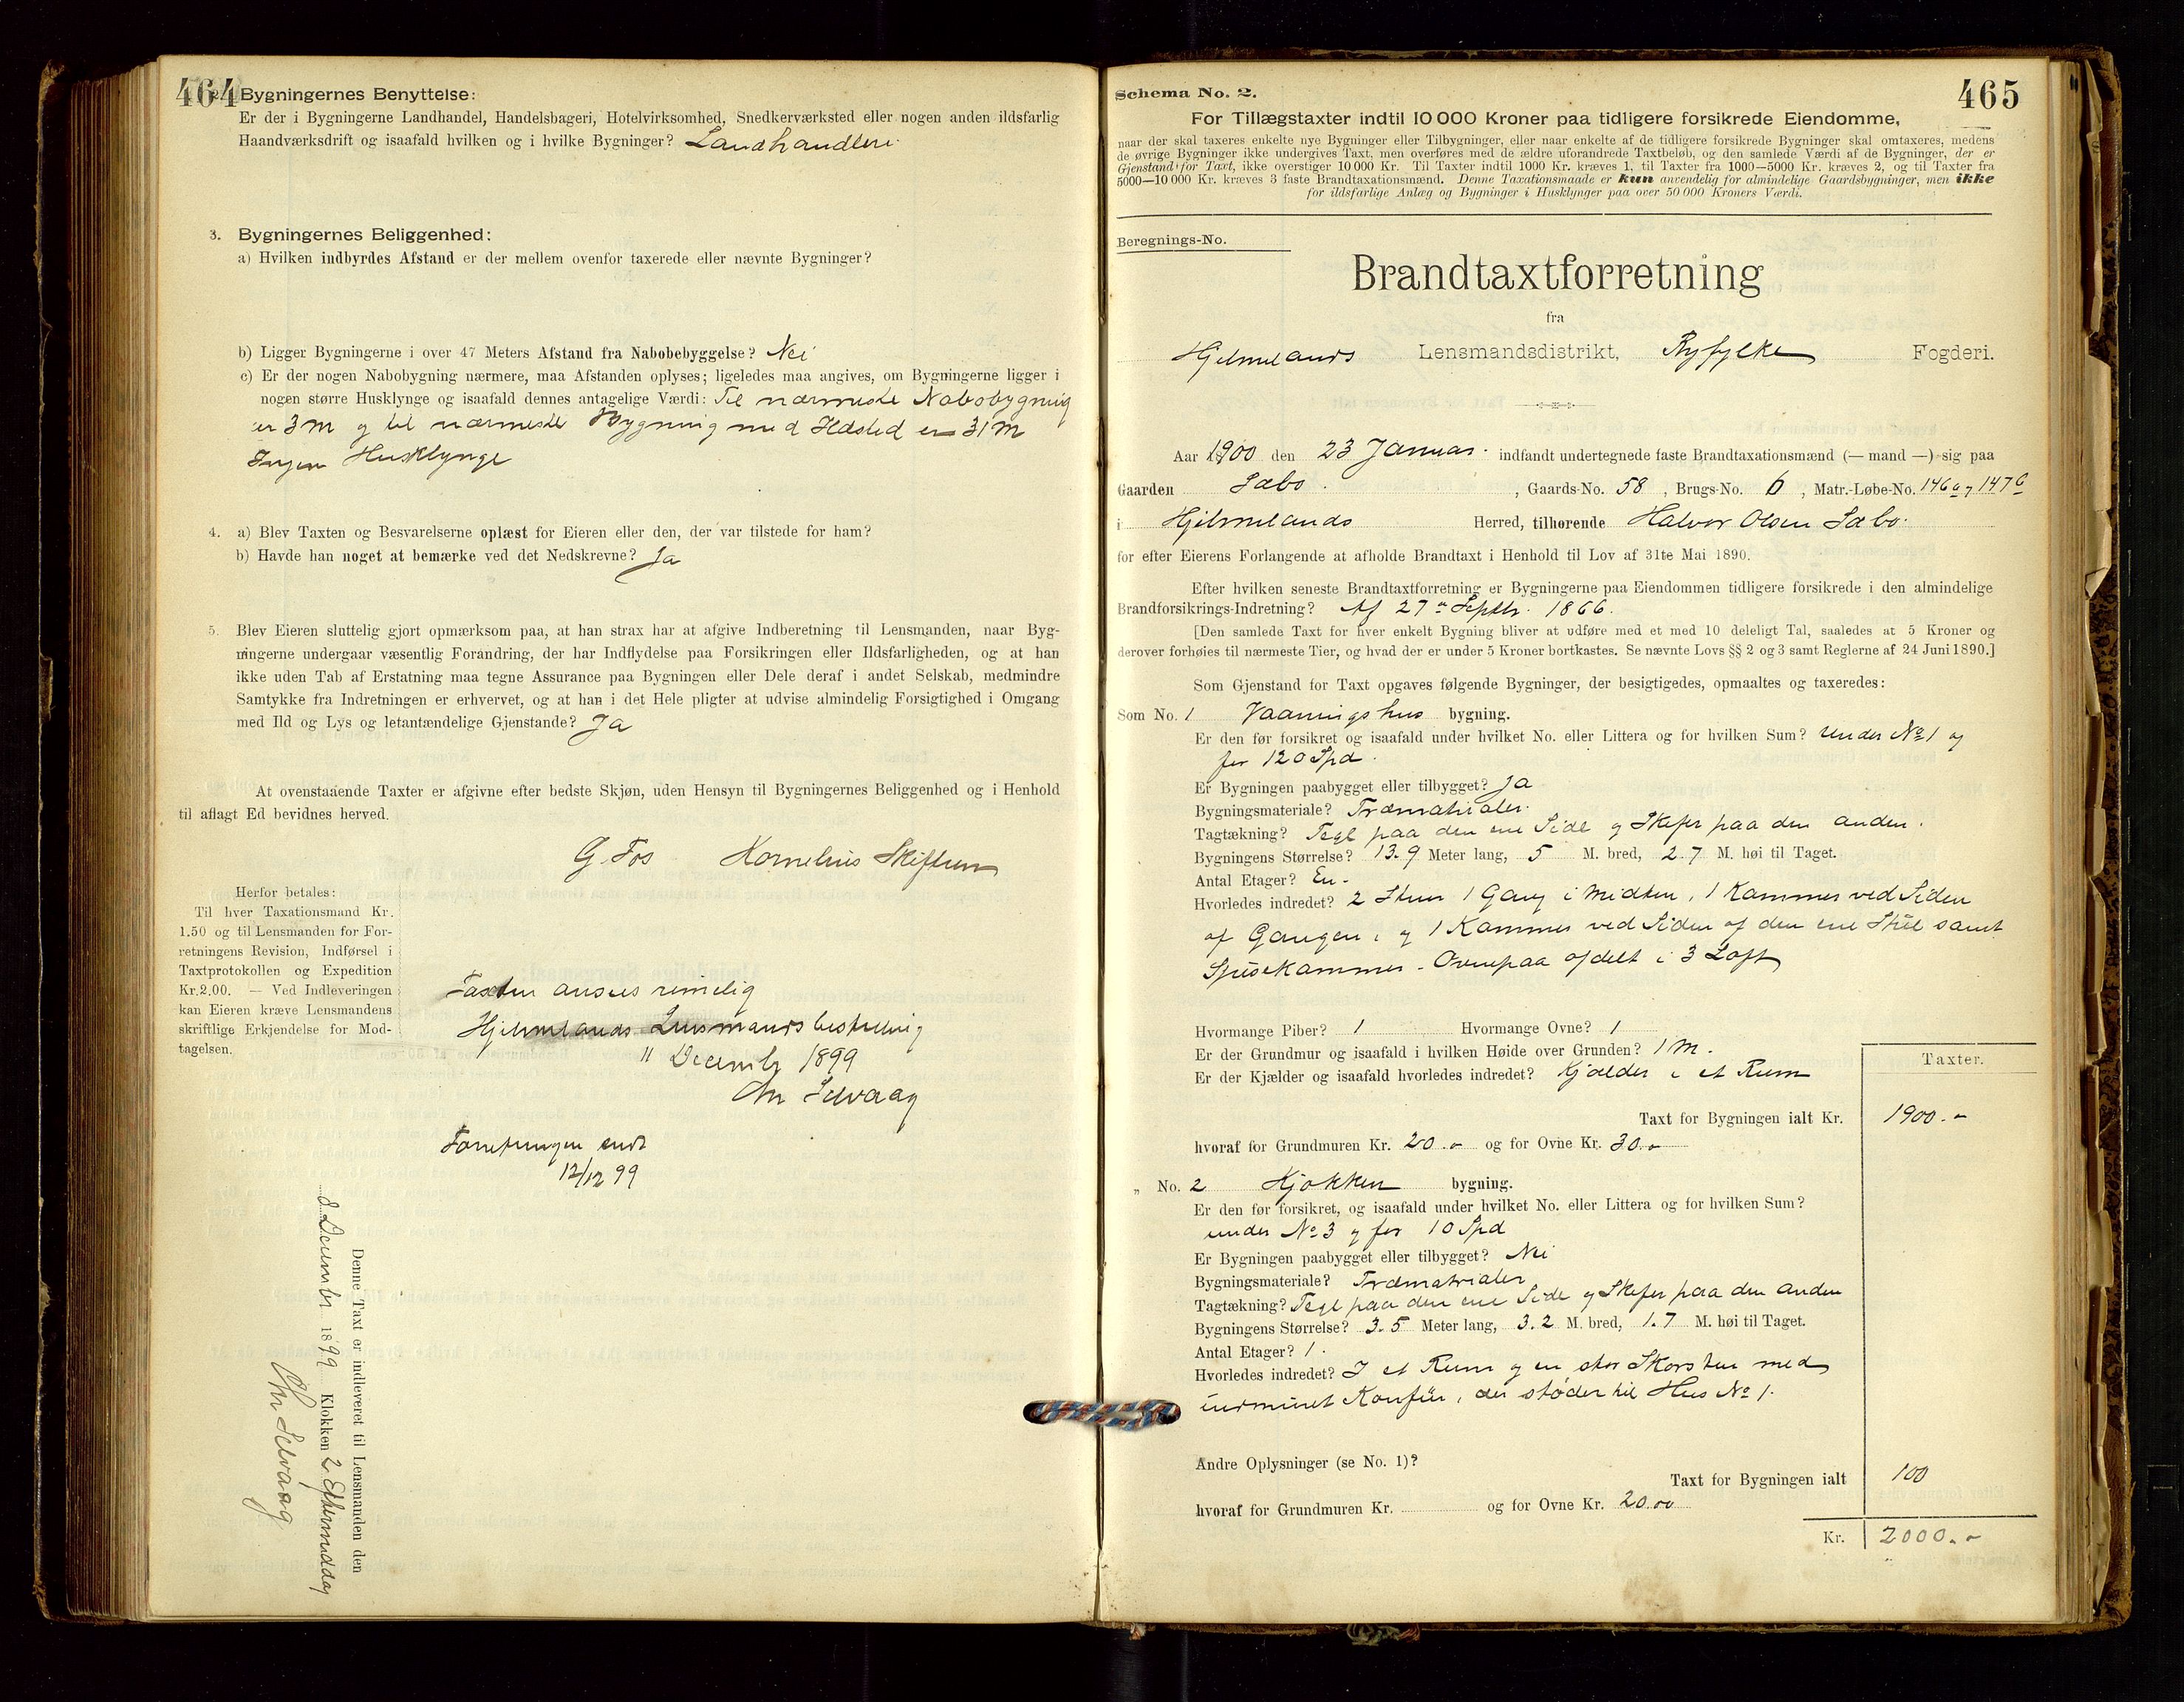 464
2. Bygningernes Benyttelse:
Er der i Bygningerne Landhandel, Handelsbageri, Hotelvirksomhed, Snedkerværksted eller nogen anden ildsfarlig
Haandværksdrift og isaafald hvilken og i hvilke Bygninger? Landhandleri.
3. Bygningernes Beliggenhed:
a) Hvilken indbyrdes Afstand er der mellem ovenfor taxerede eller nævnte Bygninger?
b) Ligger Bygningerne i over 47 Meters Afstand fra Nabobebyggelse? Nei
c) Er der nogen Nabobygning nærmere, maa Afstanden oplyses; ligeledes maa angives, om Bygningerne ligger i
nogen større Husklynge og isaafald dennes antagelige Værdi: Til nærmeste Nabobygning
er 3 m og til nærmeste Bygning med Ildsted er 31 m
Ingen Husklynge
4. a) Blev Taxten og Besvarelserne oplæst for Eieren eller den, der var tilstede for ham?
b) Havde han noget at bemærke ved det Nedskrevne? Ja
5. Blev Eieren sluttelig gjort opmærksom paa, at han strax har at afgive Indberetning til Lensmanden, naar Byg-
ningerne undergaar væsentlig Forandring, der har Indflydelse paa Forsikringen eller Ildsfarligheden, og at han
ikke uden Tab af Erstatning maa tegne Assurance paa Bygningen eller Dele deraf i andet Selskab, medmindre
Samtykke fra Indretningen er erhvervet, og at han i det Hele pligter at udvise almindelig Forsigtighed i Omgang
med Ild og Lys og letantændelige Gjenstande? Ja
At ovenstaaende Taxter er afgivne efter bedste Skjøn, uden Hensyn til Bygningernes Beliggenhed og i Henhold
til aflagt Ed bevidnes herved.
G. Fos Kornelius Skiftun
Herfor betales:
Til hver Taxationsmand Kr.
1.50 og til Lensmanden for For-
retningens Revision, Indførsel i
Taxtprotokollen og Expedition
Kr. 2.00. — Ved Indleveringen
kan Eieren kræve Lensmandens
skriftlige Erkjendelse for Mod-
tagelsen.
Taxten ansees rimelig
Hjelmelands Lensmandsbestilling
11 Decembr 1899
Chr Selvaag
Forretningen endt
12/12 99
Denne Taxt er indleveret til Lensmanden den
8 Decembr 1899 Klokken 2 Eftermiddag
Chr Selvaag
465
Schema No. 2.
For Tillægstaxter indtil 10 000 Kroner paa tidligere forsikrede Eiendomme,
naar der skal taxeres enkelte nye Bygninger eller Tilbygninger, eller naar enkelte af de tidligere forsikrede Bygninger skal omtaxeres, medens
de øvrige Bygninger ikke undergives Taxt, men overføres med de ældre uforandrede Taxtbeløb, og den samlede Værdi af de Bygninger, der er
Gjenstand for Taxt, ikke overstiger 10 000 Kr. Til Taxter indtil 1000 Kr. kræves 1, til Taxter fra 1000—5000 Kr. kræves 2, og til Taxter fra
5000—10 000 Kr. kræves 3 faste Brandtaxationsmænd. Denne Taxationsmaade er kun anvendelig for almindelige Gaardsbygninger, men ikke
for ildsfarlige Anlæg og Bygninger i Husklynger paa over 50 000 Kroners Værdi.
Beregnings-No.
Brandtaxtforretning
fra
Hjelmelands Lensmandsdistrikt, Ryfylke Fogderi.
Aar 1900 den 23 Januar. indfandt undertegnede faste Brandtaxationsmænd (— mand —) sig paa
Gaarden Sæbo. , Gaards-No. 58 , Brugs-No. 6 , Matr.-Løbe-No. 146a og 147c
i Hjelmelands Herred, tilhørende Halvor Olsen Sæbo.
for efter Eierens Forlangende at afholde Brandtaxt i Henhold til Lov af 31te Mai 1890.
Efter hvilken seneste Brandtaxtforretning er Bygningerne paa Eiendommen tidligere forsikrede i den almindelige
Brandforsikrings-Indretning? Af 27de Septbr. 1866.
[Den samlede Taxt for hver enkelt Bygning bliver at udføre med et med 10 deleligt Tal, saaledes at 5 Kroner og
derover forhøies til nærmeste Tier, og hvad der er under 5 Kroner bortkastes. Se nævnte Lovs §§ 2 og 3 samt Reglerne af 24 Juni 1890.]
Som Gjenstand for Taxt opgaves følgende Bygninger, der besigtigedes, opmaaltes og taxeredes:
Som No. 1 Vaaningshus bygning.
Er den før forsikret og isaafald under hvilket No. eller Littera og for hvilken Sum? under No 1 og
for 120 Spd.
Er Bygningen paabygget eller tilbygget? Ja
Bygningsmateriale? Træmaterialer.
Tagtækning? Tegl paa den ene Side og Skifer paa den anden.
Bygningens Størrelse? 13.9 Meter lang, 5 M. bred, 2.7 M. høi til Taget.
Antal Etager? En.
Hvorledes indredet? 2 Stuer 1 Gang i Midten, 1 Kammer ved Siden
af Gangen, og 1 Kammer ved Siden af den ene Stue samt
Spisekammer. Ovenpaa afdelt i 3 Loft
Hvormange Piber? 1 Hvormange Ovne? 1
Er der Grundmur og isaafald i hvilken Høide over Grunden? 1 m.
Er der Kjælder og isaafald hvorledes indredet? Kjælder i et Rum
Taxter.
Taxt for Bygningen ialt Kr. 1900.-
hvoraf for Grundmuren Kr. 20.- og for Ovne Kr. 30.-
„ No. 2 Kjøkken bygning.
Er den før forsikret, og isaafald under hvilket No. eller Littera og for hvilken Sum?
under No 3 og for 10 Spd
Er Bygningen paabygget eller tilbygget? Nei
Bygningsmateriale? Træmaterialer
Tagtækning? Tegl paa den ene Side og Skifer paa den anden
Bygningens Størrelse? 3.5 Meter lang, 3.2 M. bred, 1.7 M. høi til Taget.
Antal Etager? 1.
Hvorledes indredet? I et Rum og en stor Skorsten med
indmuret Komfur, der støder til Hus No 1.
Andre Oplysninger (se No. 1)?
Taxt for Bygningen ialt 100
hvoraf for Grundmuren Kr. og for Ovne Kr. 20.00
Kr. 2000.-